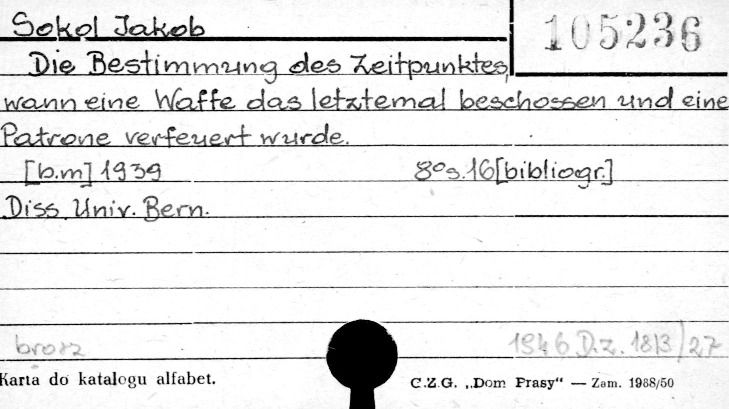 Sokol Jakob
105236
Die Bestimmung des Zeitpunktes,
wann eine Waffe das letztemal beschossen und eine
Patrone verfeuert wurde.
[b.m] 1939 8°s.16[bibliogr.]
Diss. Univ. Bern.
brosz 1946 D.z. 1813/27
Karta do katalogu alfabet. C.Z.G. „Dom Prasy“ — Zam. 1988/50